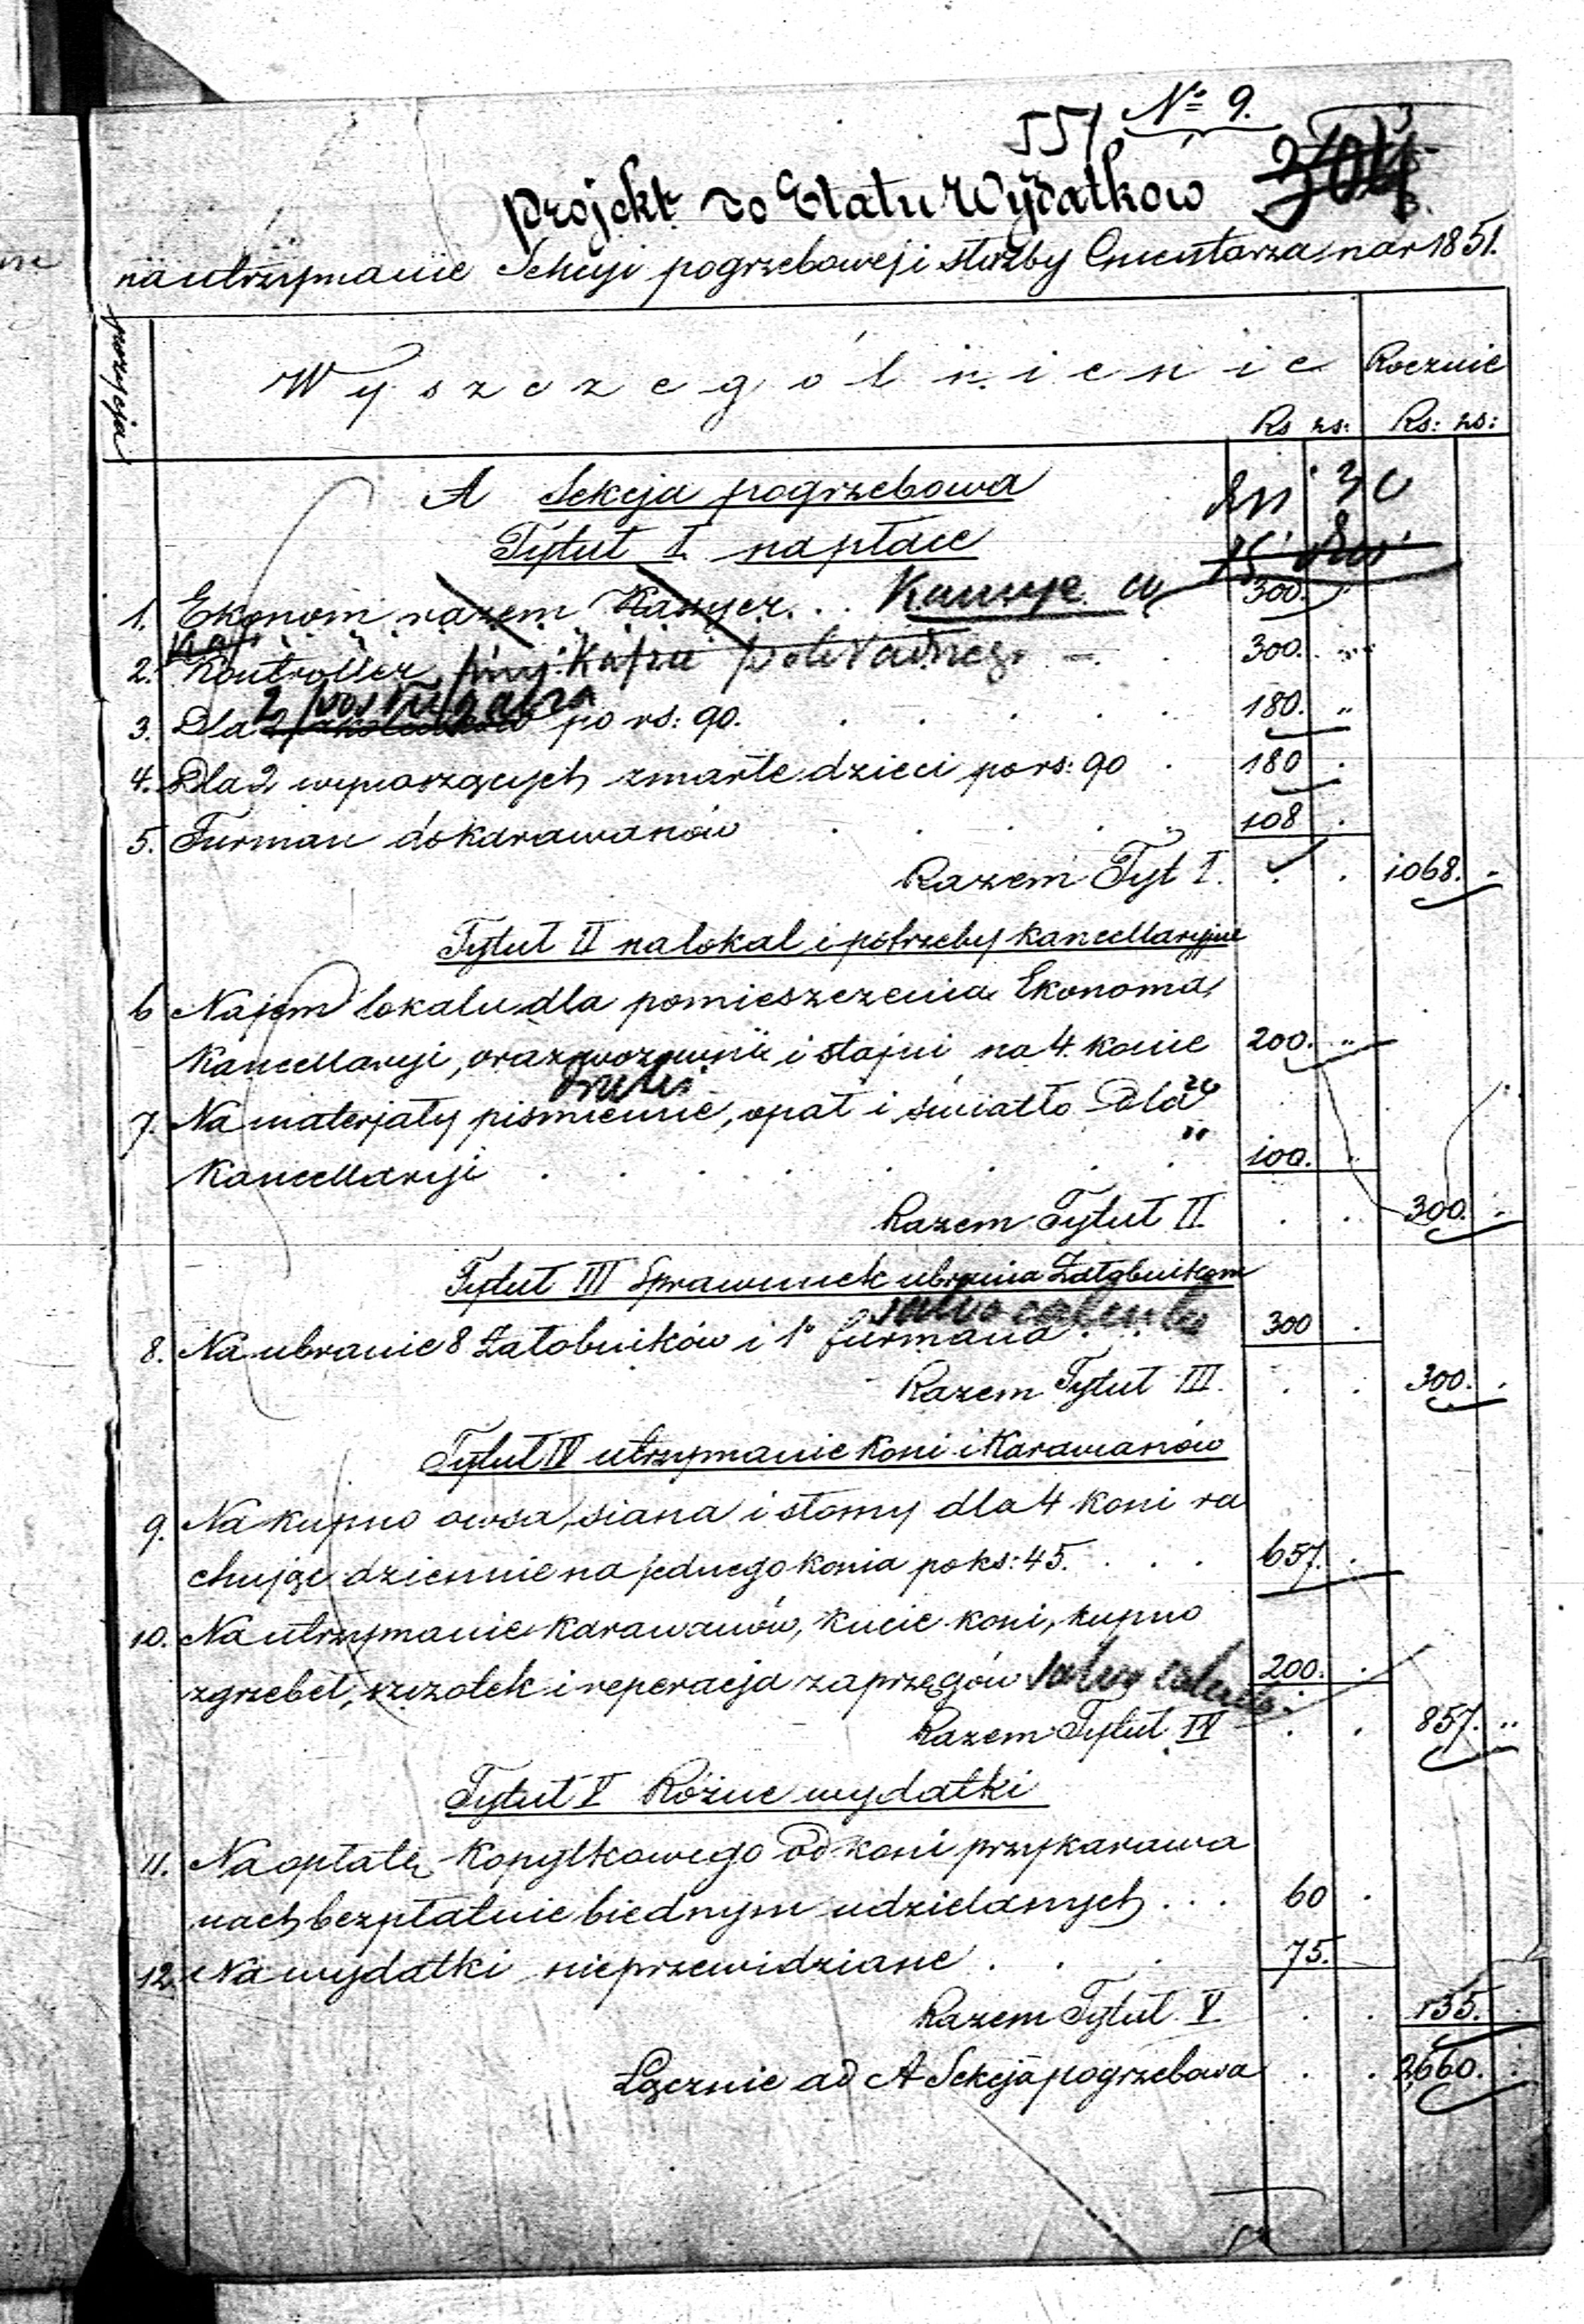 № 9.
551
304
Projekt do Etatu Wydatkow
na utrzymanie Sekcyi pogrzebowej i służby Cmentarza na r 1851.
pozycja
Wyszczególnienie
Rocznie
Rs ks: Rs: ks:
A Sekcja pogrzebowa
Tytuł I na płace
1. Ekonom razem Kassyer. 300.
2. Kontroller, przy 300. "
2
3. Dla 2 po rs: 90. 180. "
4. Dla 2 wynoszących zmarłe dzieci po rs: 90 180 .
5. Furman do karawanów 108 .
Razem Tyt I. 1068. "
Tytuł II na lokal i potrzeby kancellaryjne
6 Najem lokalu dla pomieszczenia Ekonoma,
Kancellaryi, oraz wozowni i stajni na 4. konie 200. "
7. Na materjały piśmienne, opał i światło dla
Kancellaryi 100. "
Razem Tytuł II. 300. "
Tytuł III Sprawunek ubrania Żałobnikom
salvo calculo
8. Na ubranie 8 Żałobników i 1o furmana 300 .
Razem Tytuł III. 300. .
Tytuł IV utrzymanie Koni i Karawanów
9. Na kupno owsa, siana i słomy dla 4 koni ra
chując dziennie na jednego konia po ks: 45. 657. .
10. Na utrzymanie karawanów, kucie koni, kupno
zgrzebeł, szczotek i reperacja zaprzęgów salvo calculo 200. .
Razem Tytuł IV 857. "
Tytuł V Różne wydatki
11. Na opłatę Kopytkowego od koni przy karawa
nach bezpłatnie biednym udzielanych 60 .
12. Na wydatki nieprzewidziane 75.
Razem Tytuł V. 135.
Łącznie ad A Sekcja pogrzebowa 2660.